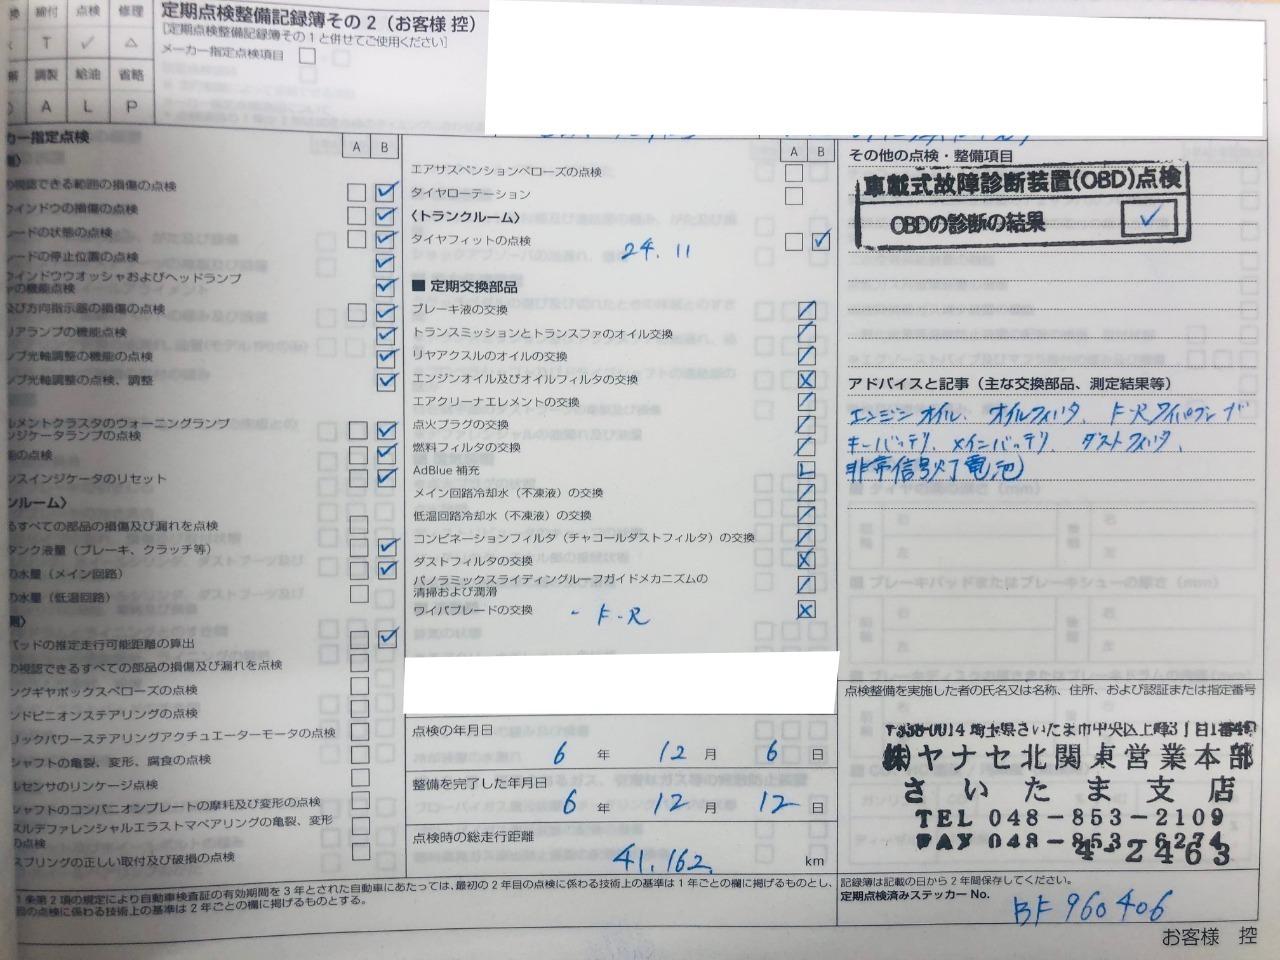 換 締付 点検 修理
T ✓ △
調製 給油 省略
A L P
定期点検整備記録簿その2（お客様 控）
[定期点検整備記録簿その1と併せてご使用ください]
メーカー指定点検項目
カー指定点検
A B
の視認できる範囲の損傷の点検
ウインドウの損傷の点検
レードの状態の点検
レードの停止位置の点検
ウインドウウオッシャおよびヘッドランプ
の機能点検
及び方向指示器の損傷の点検
リアランプの機能点検
ンプ光軸調整の機能の点検
ンプ光軸調整の点検、調整
ルメントクラスタのウォーニングランプ
ンジケータランプの点検
の点検
ンスインジケータのリセット
ンルーム〉
るすべての部品の損傷及び漏れを点検
タンク液量（ブレーキ、クラッチ等）
の水量（メイン回路）
の水量（低温回路）
パッドの推定走行可能距離の算出
の視認できるすべての部品の損傷及び漏れを点検
ングギヤボックスベローズの点検
ンドピニオンステアリングの点検
リックパワーステアリングアクチュエーターモータの点検
シャフトの亀裂、変形、腐食の点検
ルセンサのリンケージ点検
シャフトのコンパニオンプレートの摩耗及び変形の点検
スルデファレンシャルエラストマベアリングの亀裂、変形
の点検
スプリングの正しい取付及び破損の点検
A B
エアサスペンションベローズの点検
タイヤローテーション
〈トランクルーム〉
タイヤフィットの点検 24.11
■ 定期交換部品
ブレーキ液の交換
トランスミッションとトランスファのオイル交換
リヤアクスルのオイルの交換
エンジンオイル及びオイルフィルタの交換
エアクリーナエレメントの交換
点火プラグの交換
燃料フィルタの交換
AdBlue 補充 L
メイン回路冷却水（不凍液）の交換
低温回路冷却水（不凍液）の交換
コンビネーションフィルタ（チャコールダストフィルタ）の交換
ダストフィルタの交換
パノラミックスライディングルーフガイドメカニズムの
清掃および潤滑
ワイパブレードの交換 - F・R
点検の年月日
6 年 12 月 6 日
整備を完了した年月日
6 年 12 月 12 日
点検時の総走行距離
41,162 km
その他の点検・整備項目
車載式故障診断装置(OBD)点検
OBDの診断の結果 ✓
アドバイスと記事（主な交換部品、測定結果等）
エンジンオイル、オイルフィルタ、F・Rワイパブレード
キーバッテリ、メインバッテリ、ダストフィルタ、
非常信号灯電池
点検整備を実施した者の氏名又は名称、住所、および認証または指定番号
〒338-0014 埼玉県さいたま市中央区上峰3丁目1番4号
㈱ヤナセ北関東営業本部
さいたま支店
TEL 048-853-2109
FAX 048-853-6274
4-2463
記録簿は記載の日から2年間保存してください。
定期点検済みステッカー No.
BF960406
1条第2項の規定により自動車検査証の有効期間を3年とされた自動車にあたっては、最初の2年目の点検に係わる技術上の基準は1年ごとの欄に掲げるものとし、
目の点検に係わる技術上の基準は2年ごとの欄に掲げるものとする。
お客様 控